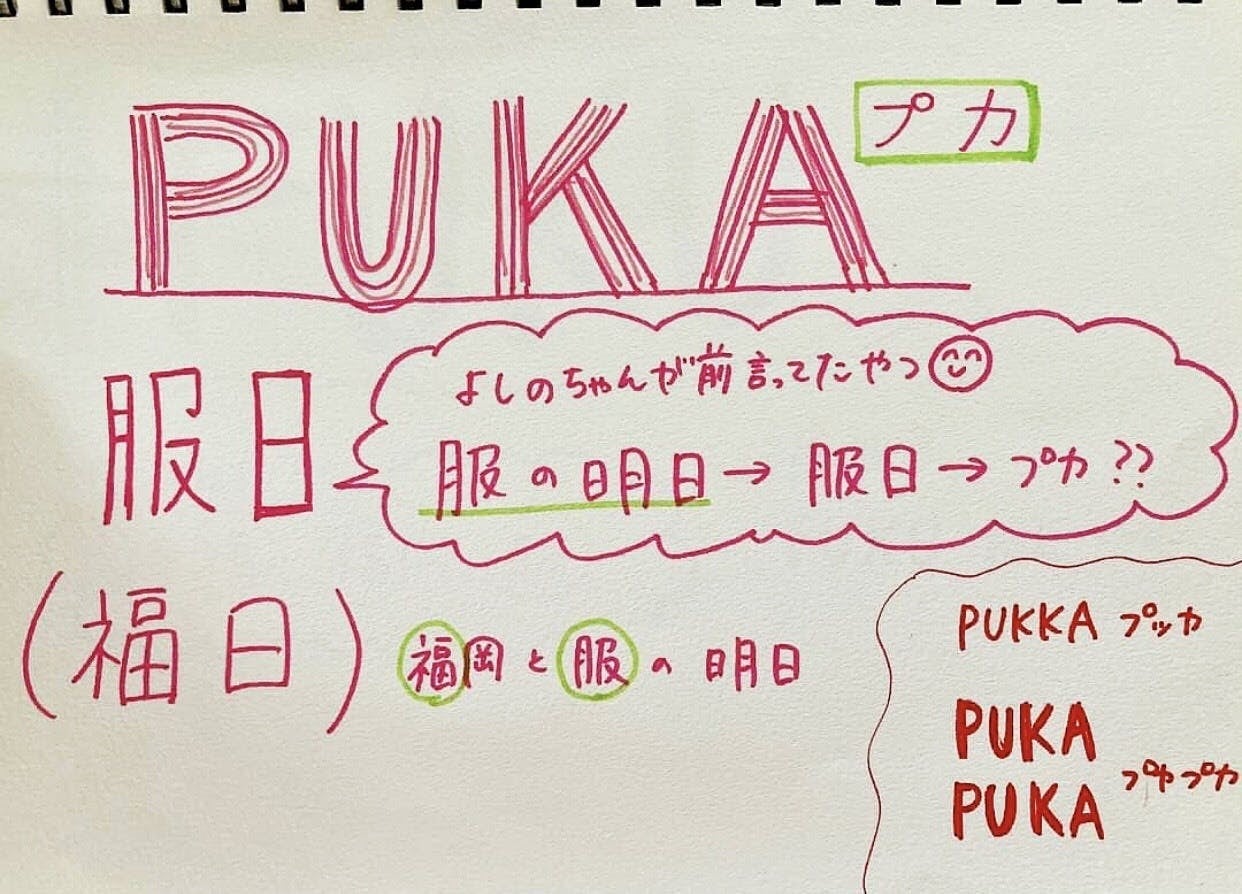 PUKA プカ
服日
よしのちゃんが前言ってたやつ
服の明日→服日→プカ??
(福日) 福岡と服の明日
PUKKA プッカ
PUKA
PUKA プカプカ